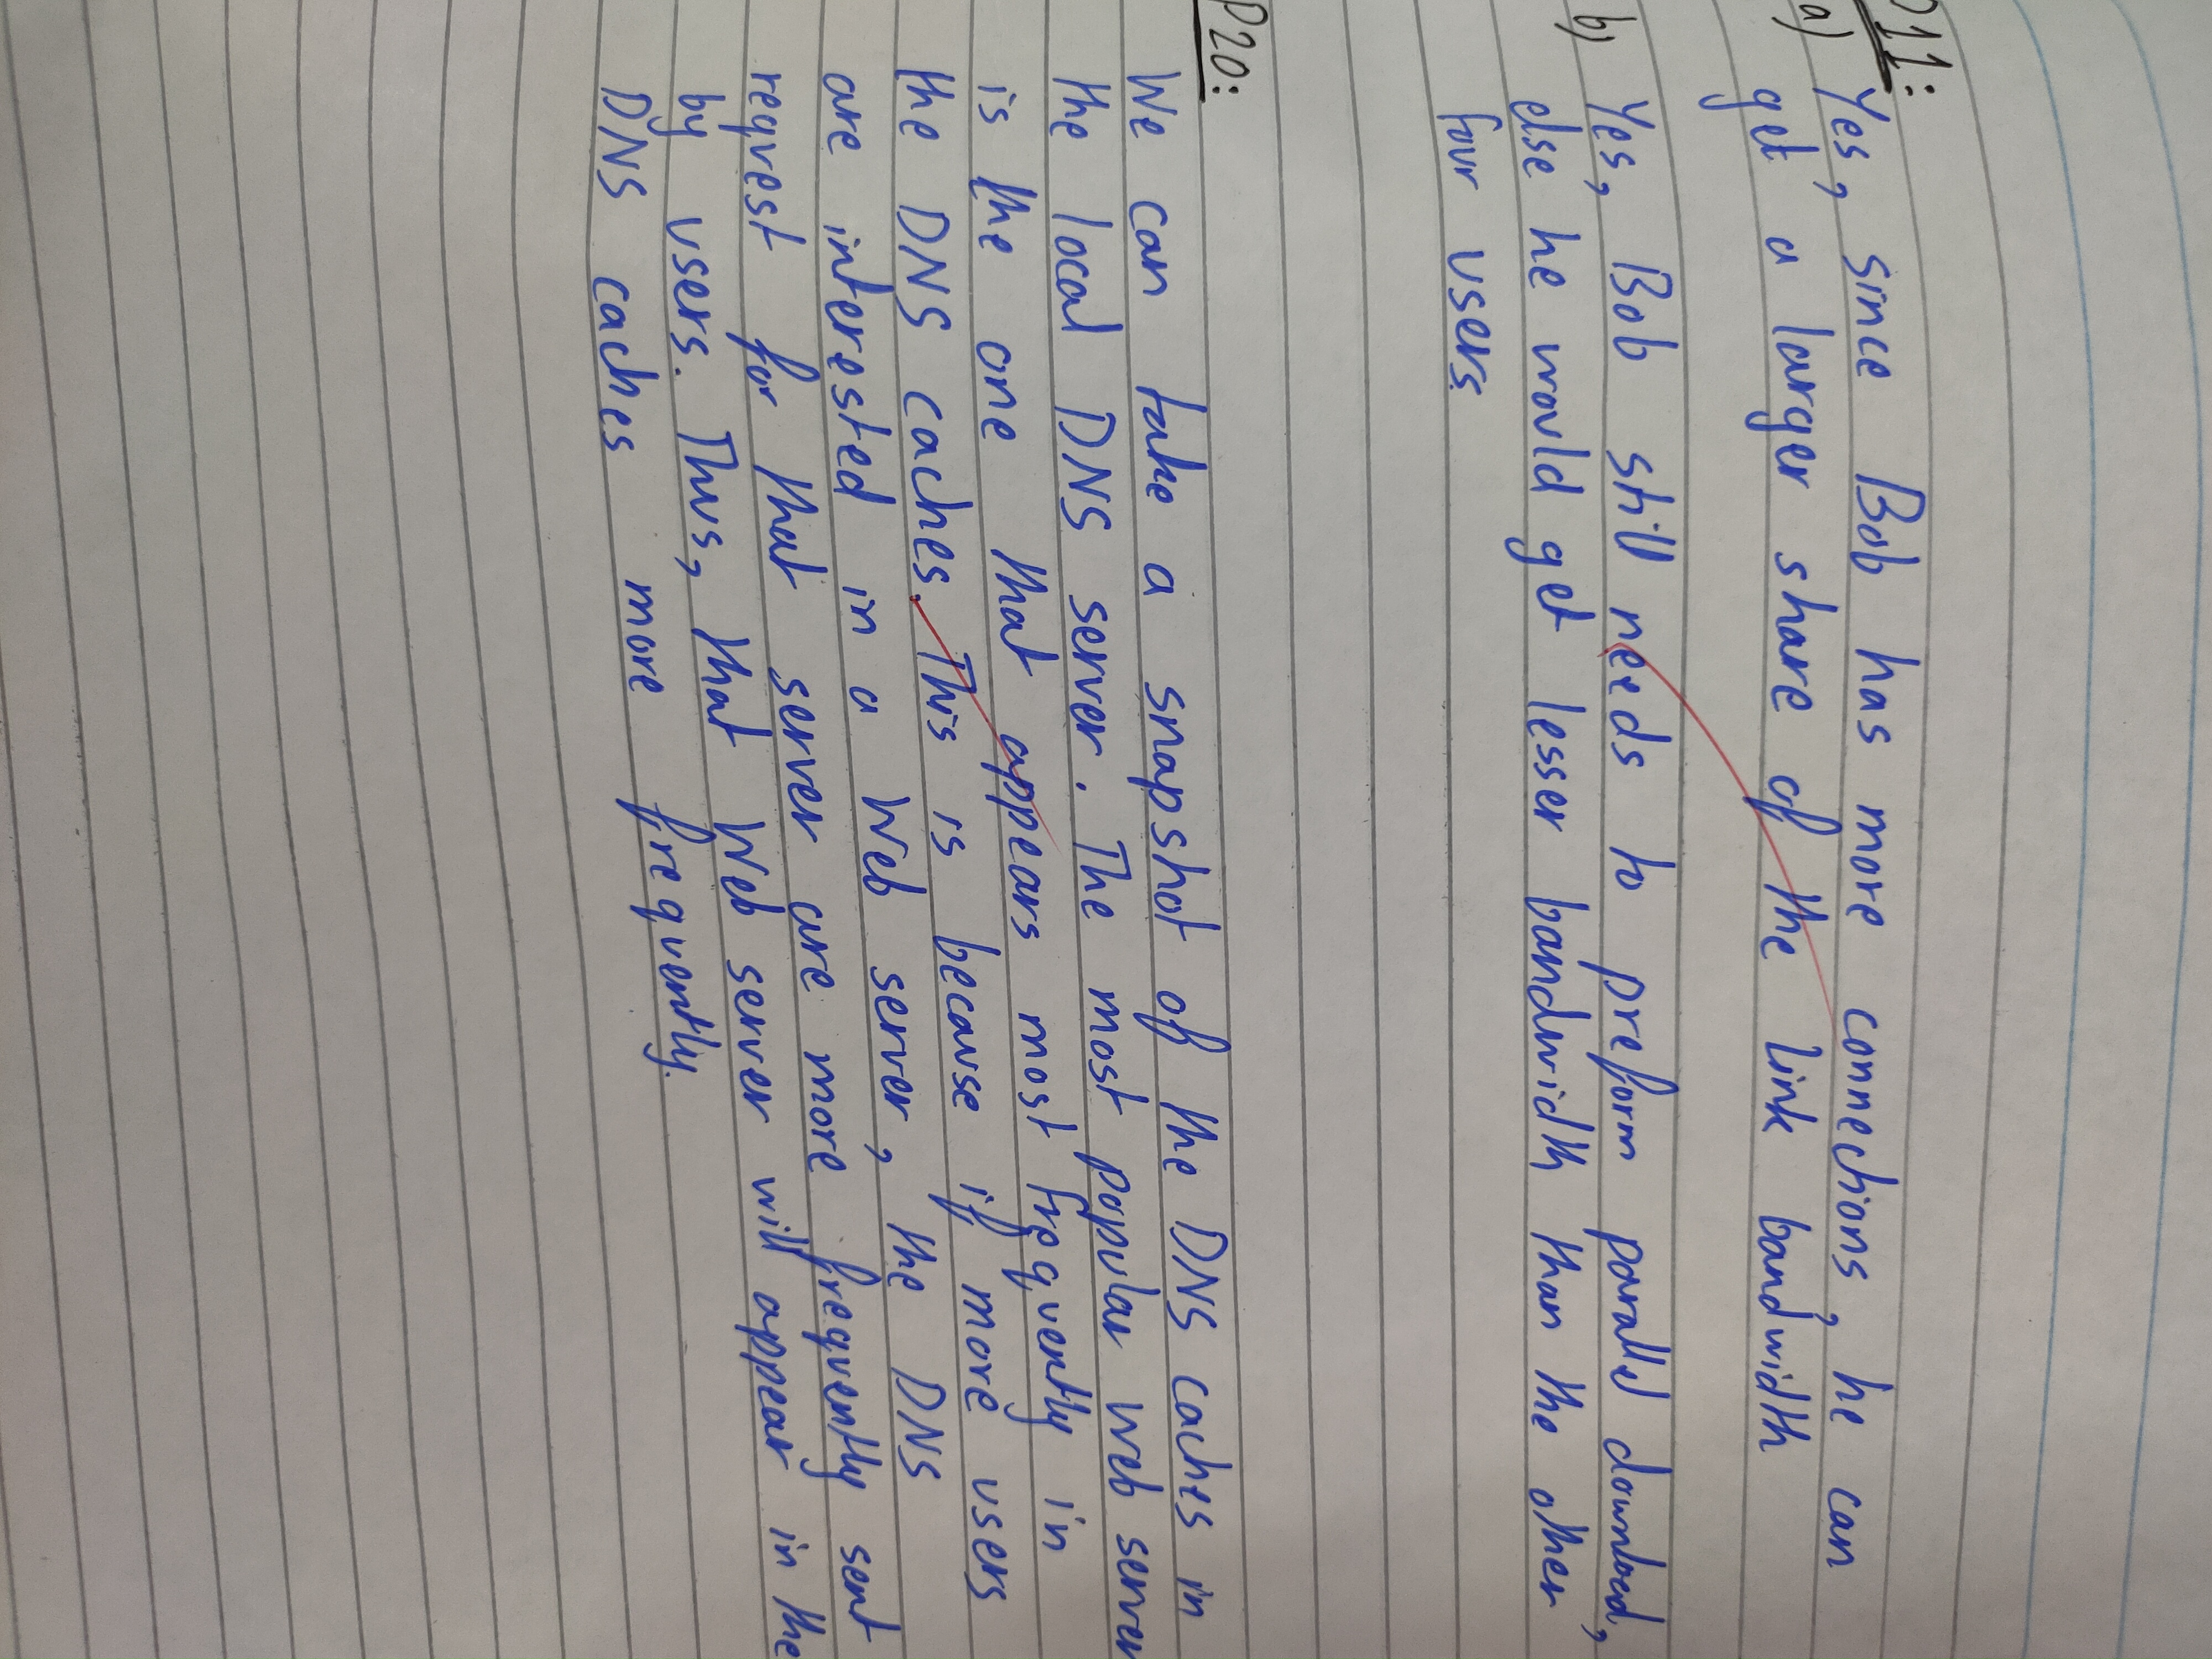 P11:
a) Yes, since Bob has more connections, he can
get a larger share of the link bandwidth
b) Yes, Bob still needs to preform parallel download,
else he would get lesser bandwidth than the other
four users.
P20:
We can take a snapshot of the DNS caches in
the local DNS server. The most popular Web server
is the one that appears most frequently in
the DNS caches. This is because if more users
are interested in a Web server, the DNS
request for that server are more frequently sent
by users. Thus, that Web server will appear in the
DNS caches more frequently.